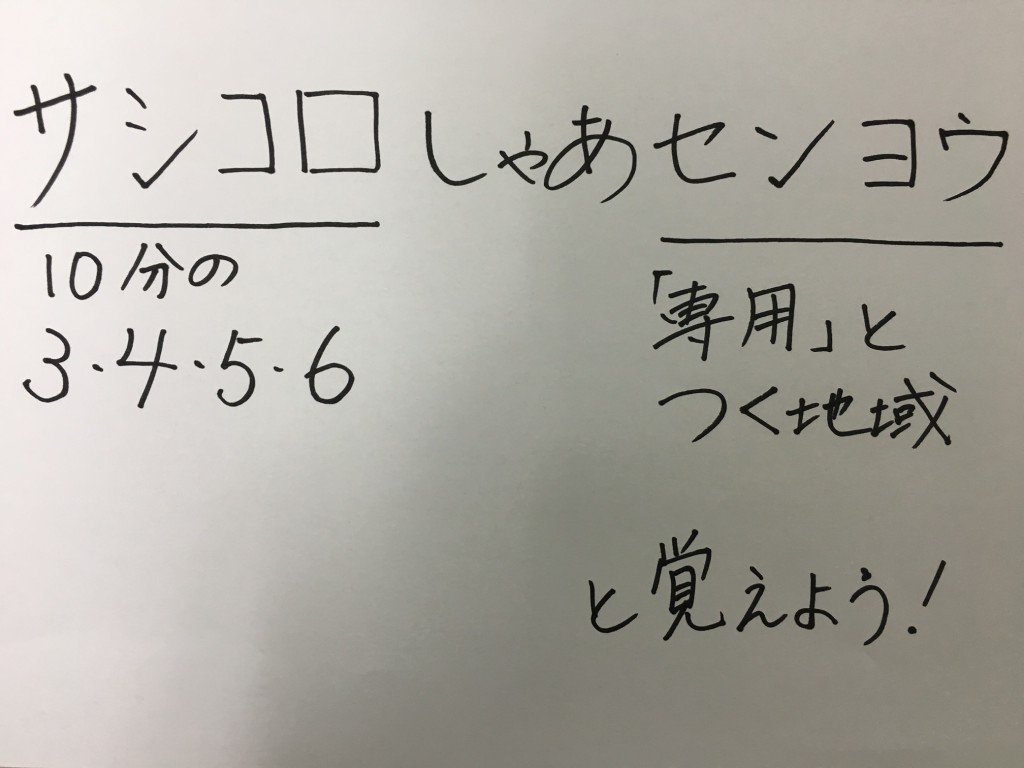 サシコロしゃあセンヨウ
10分の
3・4・5・6
「専用」と
つく地域
と覚えよう!